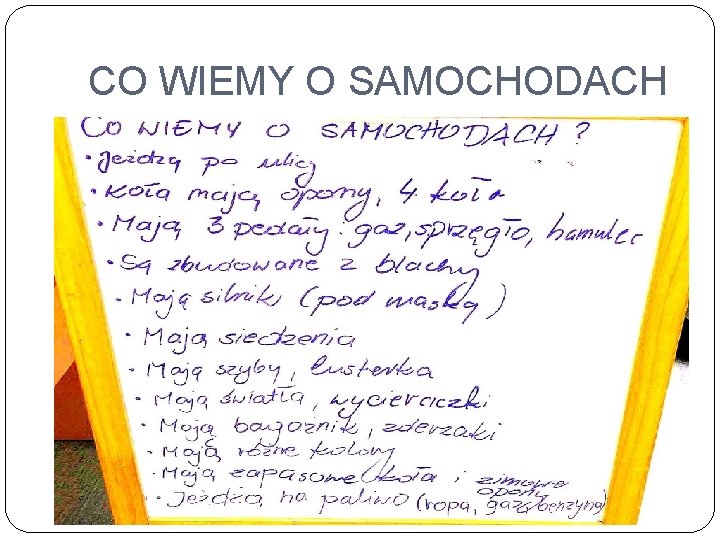 CO WIEMY O SAMOCHODACH
CO WIEMY O SAMOCHODACH?
• Jeżdżą po ulicy
• Koła mają opony, 4 koła
• Mają 3 pedały: gaz, sprzęgło, hamulec
• Są zbudowane z blachy
• Mają silnik (pod maską)
• Mają siedzenia
• Mają szyby, lusterka
• Mają światła, wycieraczki
• Mają bagażnik, zderzaki
• Mają różne kolory
• Mają zapasowe koła i zimowe
opony
• Jeżdżą na paliwo (ropa, gaz, benzyna)